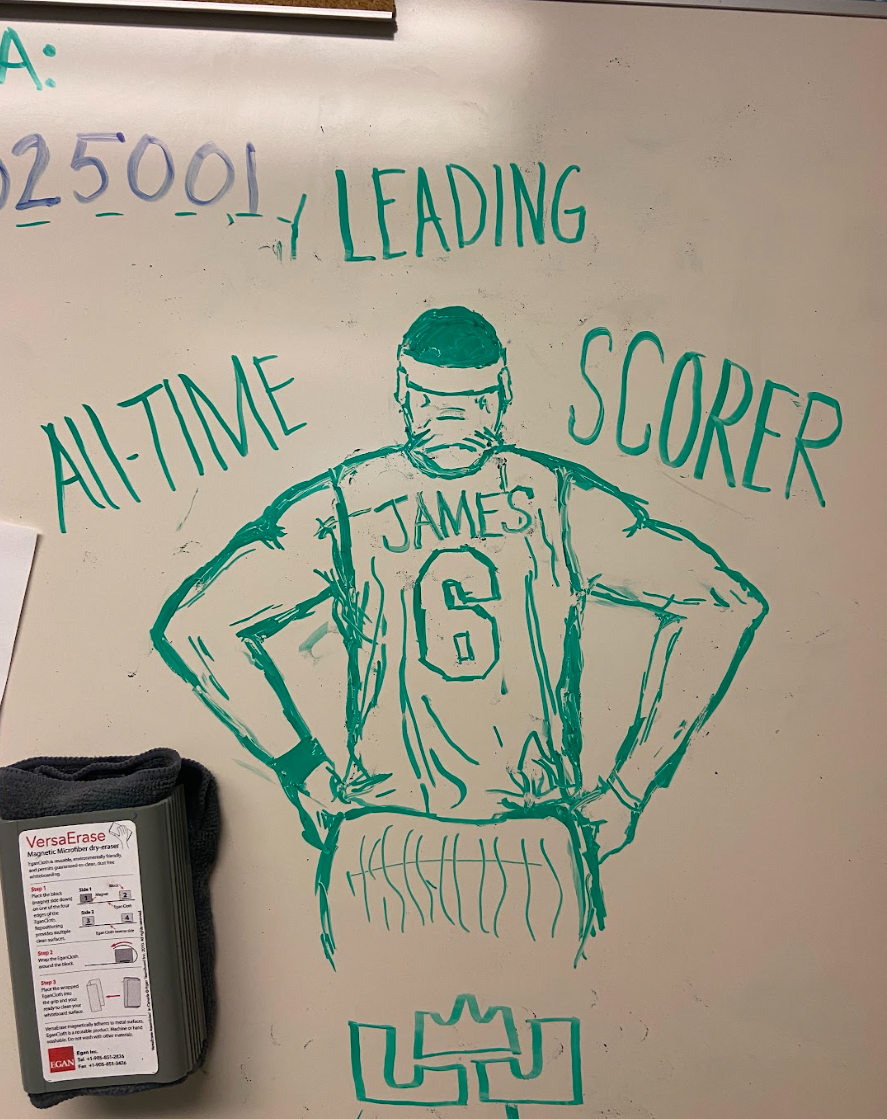 A:
025001
LEADING
All-TIME
SCORER
JAMES
6
VersaErase
Magnetic Microfiber dry-eraser
EganCloth is reusable, environmentally friendly,
and permits guaranteed-to-clean, dust free
whiteboarding.
Step 1
Place the block
magnet side down
on one of the four
edges of the
EganCloth.
Repositioning
provides multiple
clean surfaces.
Side 1
Block
1
Magnet
2
EganCloth
Side 2
3
4
EganCloth reverse side
Step 2
Wrap the EganCloth
around the block.
Step 3
Place the wrapped
EganCloth into
the grip and your
ready to clean your
whiteboard surface.
VersaErase magnetically adheres to metal surfaces.
EganCloth is a reusable product. Machine or hand
washable. Do not wash with other materials.
EGAN
Egan Inc.
Tel +1-905-851-2826
Fax +1-905-851-3426